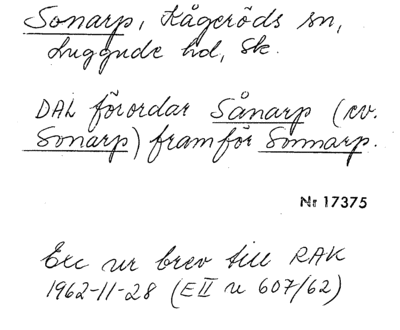 Sonarp, Kågeröds sn,
Luggude hd, Sk.
DAL förordar Sånarp (ev.
Sonarp) framför Sonnarp.
Nr 17375
Exc ur brev till RAK
1962-11-28 (EII u 607/62)